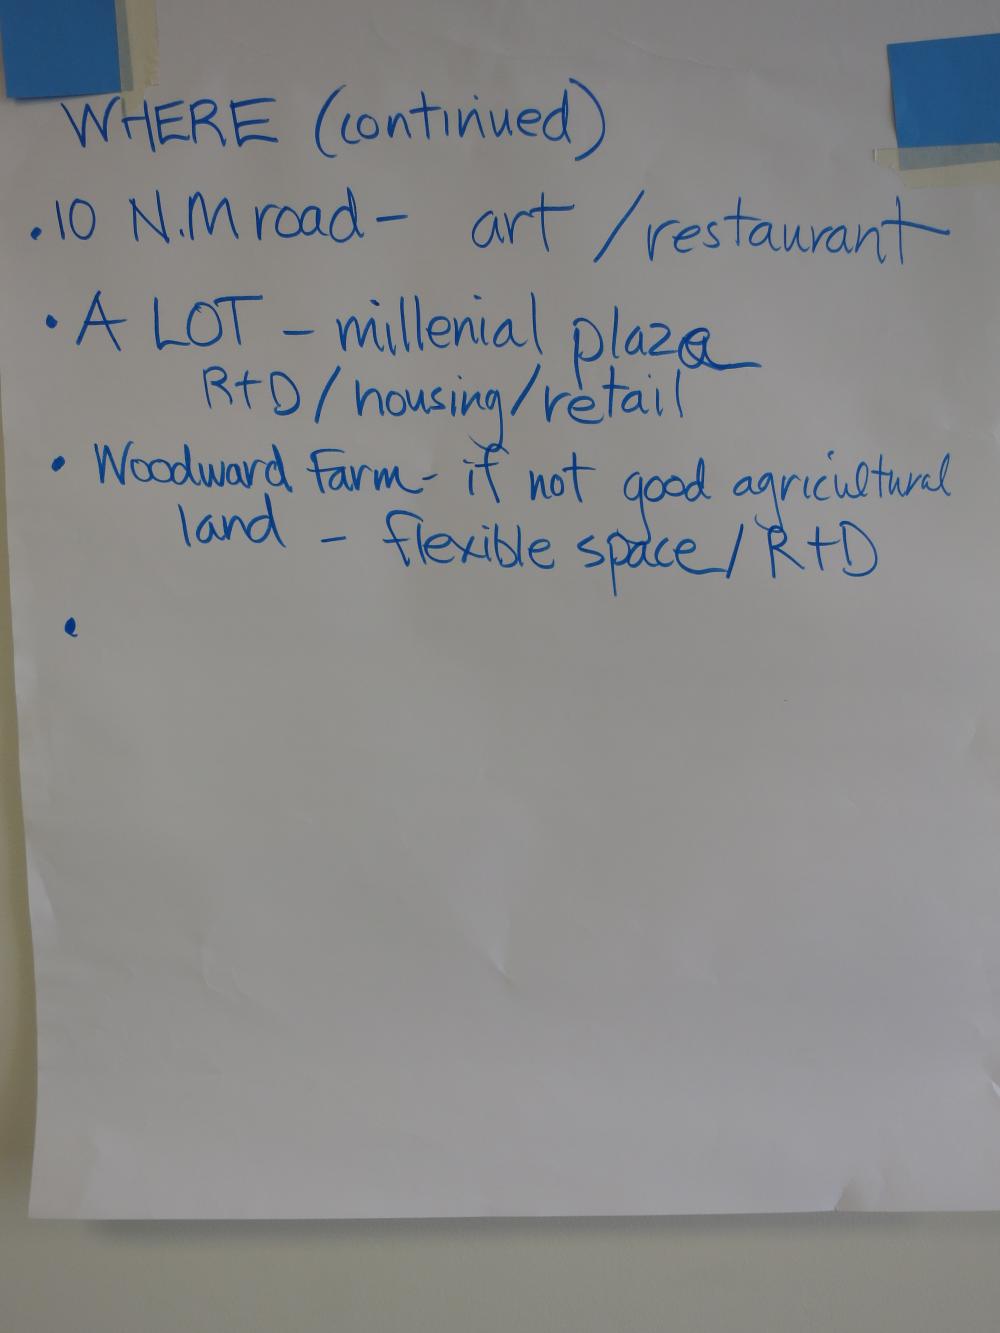 WHERE (continued)
• 10 N.M road - art / restaurant
• A LOT - millenial plaza
R+D / housing / retail
• Woodward Farm - if not good agricultural
land - flexible space / R+D
•